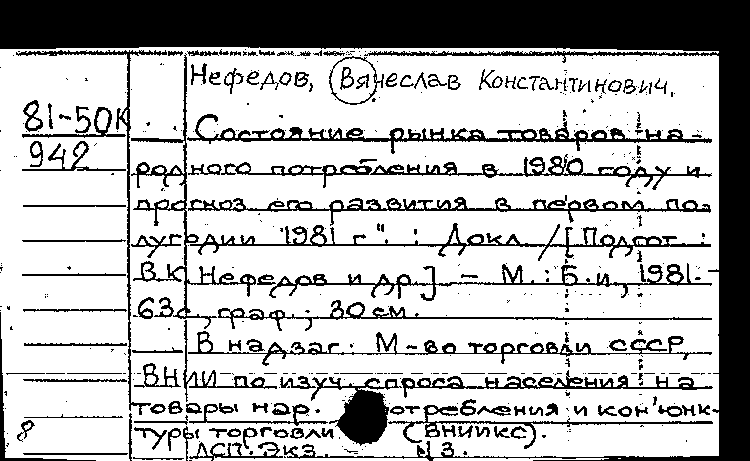 Нефедов, Вячеслав Константинович.
81-50К
942
Состояние рынка товаров на-
родного потребления в 1980 году и
прогноз его развития в первом по-
лугодии "1981 г". : Докл / [Подгот. :
В.К Нефедов и др.] - М. : Б.и., 1981. -
63с, граф.; 30 см.
В надзаг: М-во торговли СССР,
ВНИИ по изуч. спроса населения на
товары нар. потребления и кон'юнк-
туры торговли (ВНИИКС).
8
ДСП. Экз. N3.